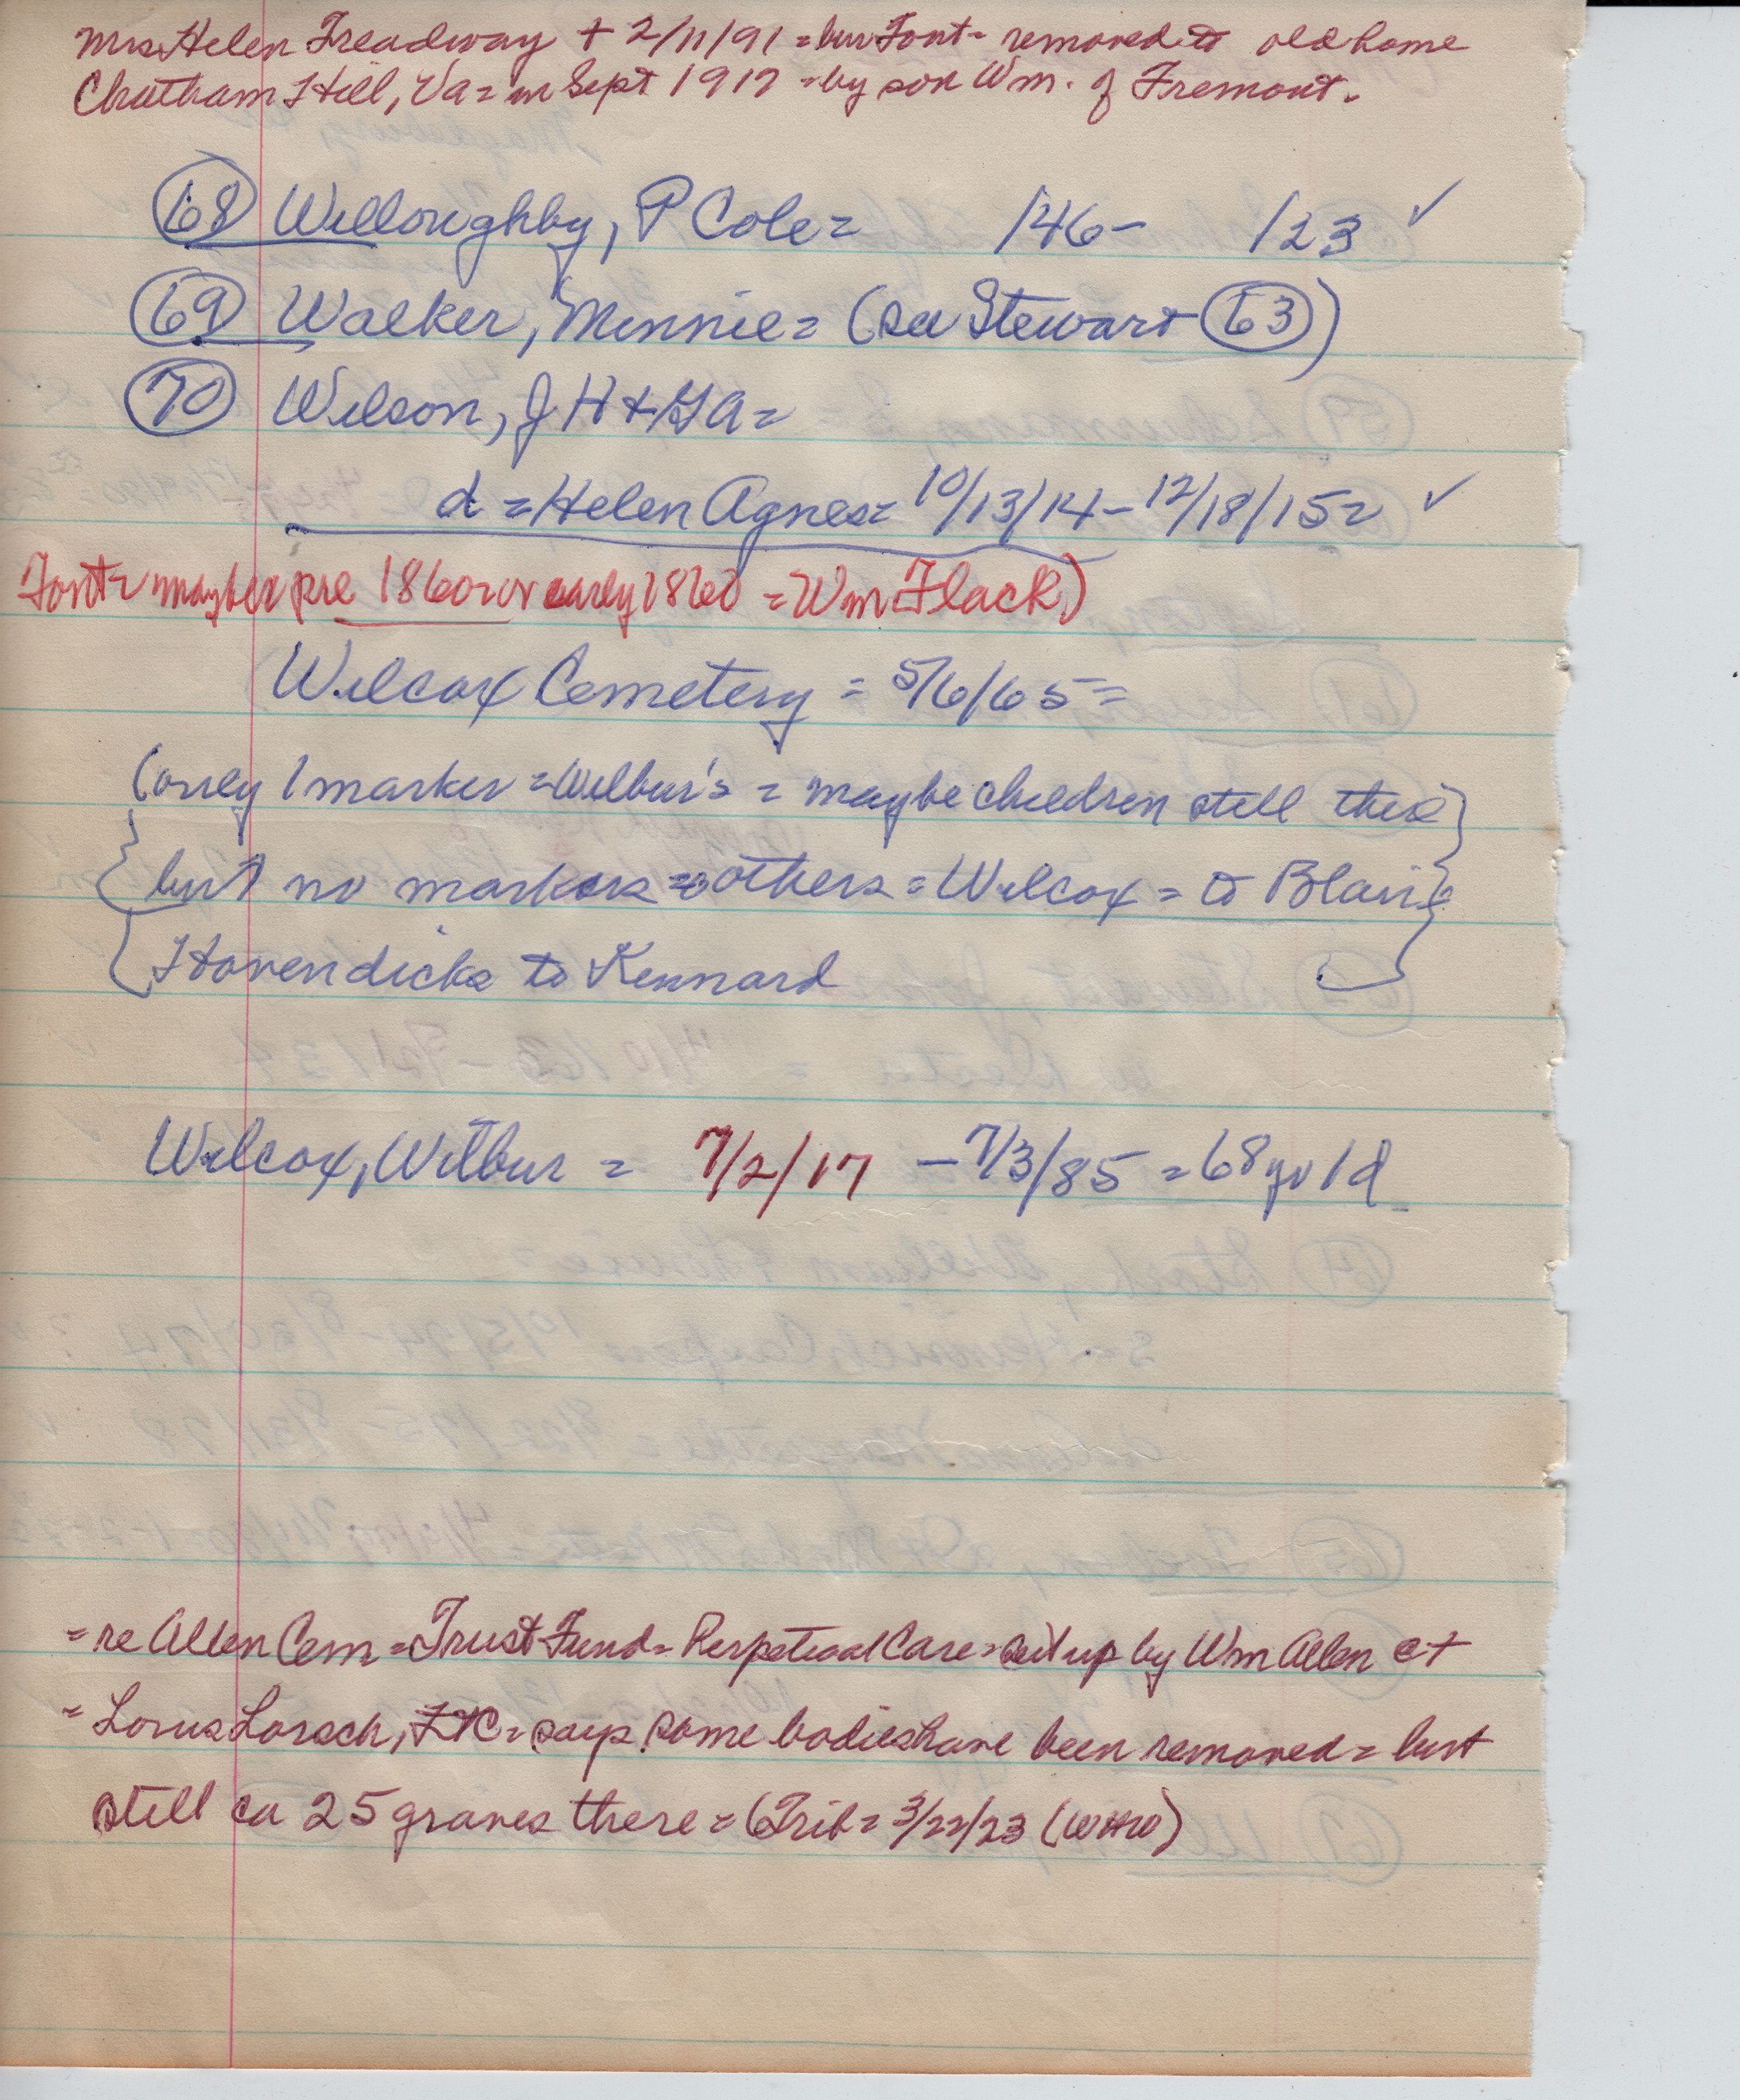 Mrs. Helen Treadway + 2/11/91 = bur Font = removed to old home
Chatham Hill, Va = in Sept 1917 = by son Wm. of Fremont.
68 Willoughby, P Cole = /46 - /23 ✓
69 Walker, Minnie = (see Stewart 63)
70 Wilson, J H + G A =
d = Helen Agnes = 10/13/14 - 12/18/15 = ✓
Font = maybe pre 1860 = or early 1860 = Wm Flack)
Wilcox Cemetery = 5/6/65 =
(only 1 marker = Wilbur's = maybe children still there
but no markers = others = Wilcox = to Blair
Hovendicks to Kennard
Wilcox, Wilbur = 7/2/17 - 7/3/85 = 68 y old
= re Allen Cem = Trust Fund = Perpetual Care = set up by Wm Allen et
= Lorus Larsch, = says some bodies have been removed = but
still ca 25 graves there = (Trib = 3/22/23 (WHW)